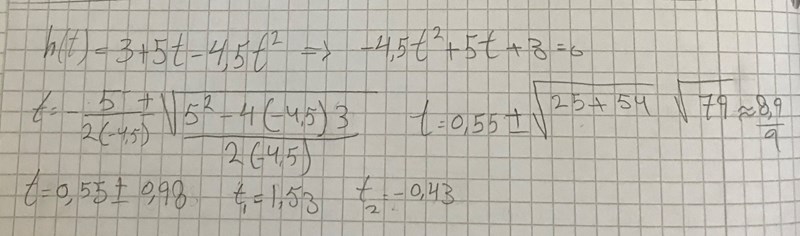 h(t) = 3+5t-4,5t² => -4,5t²+5t+3=0
t=-5/2(-4,5) ± √(5²-4(-4,5)3)/2(-4,5) t=0,55±√(25+54) √79 ≈ 8,9/9
t=0,55±0,98 t₁=1,53 t₂=-0,43